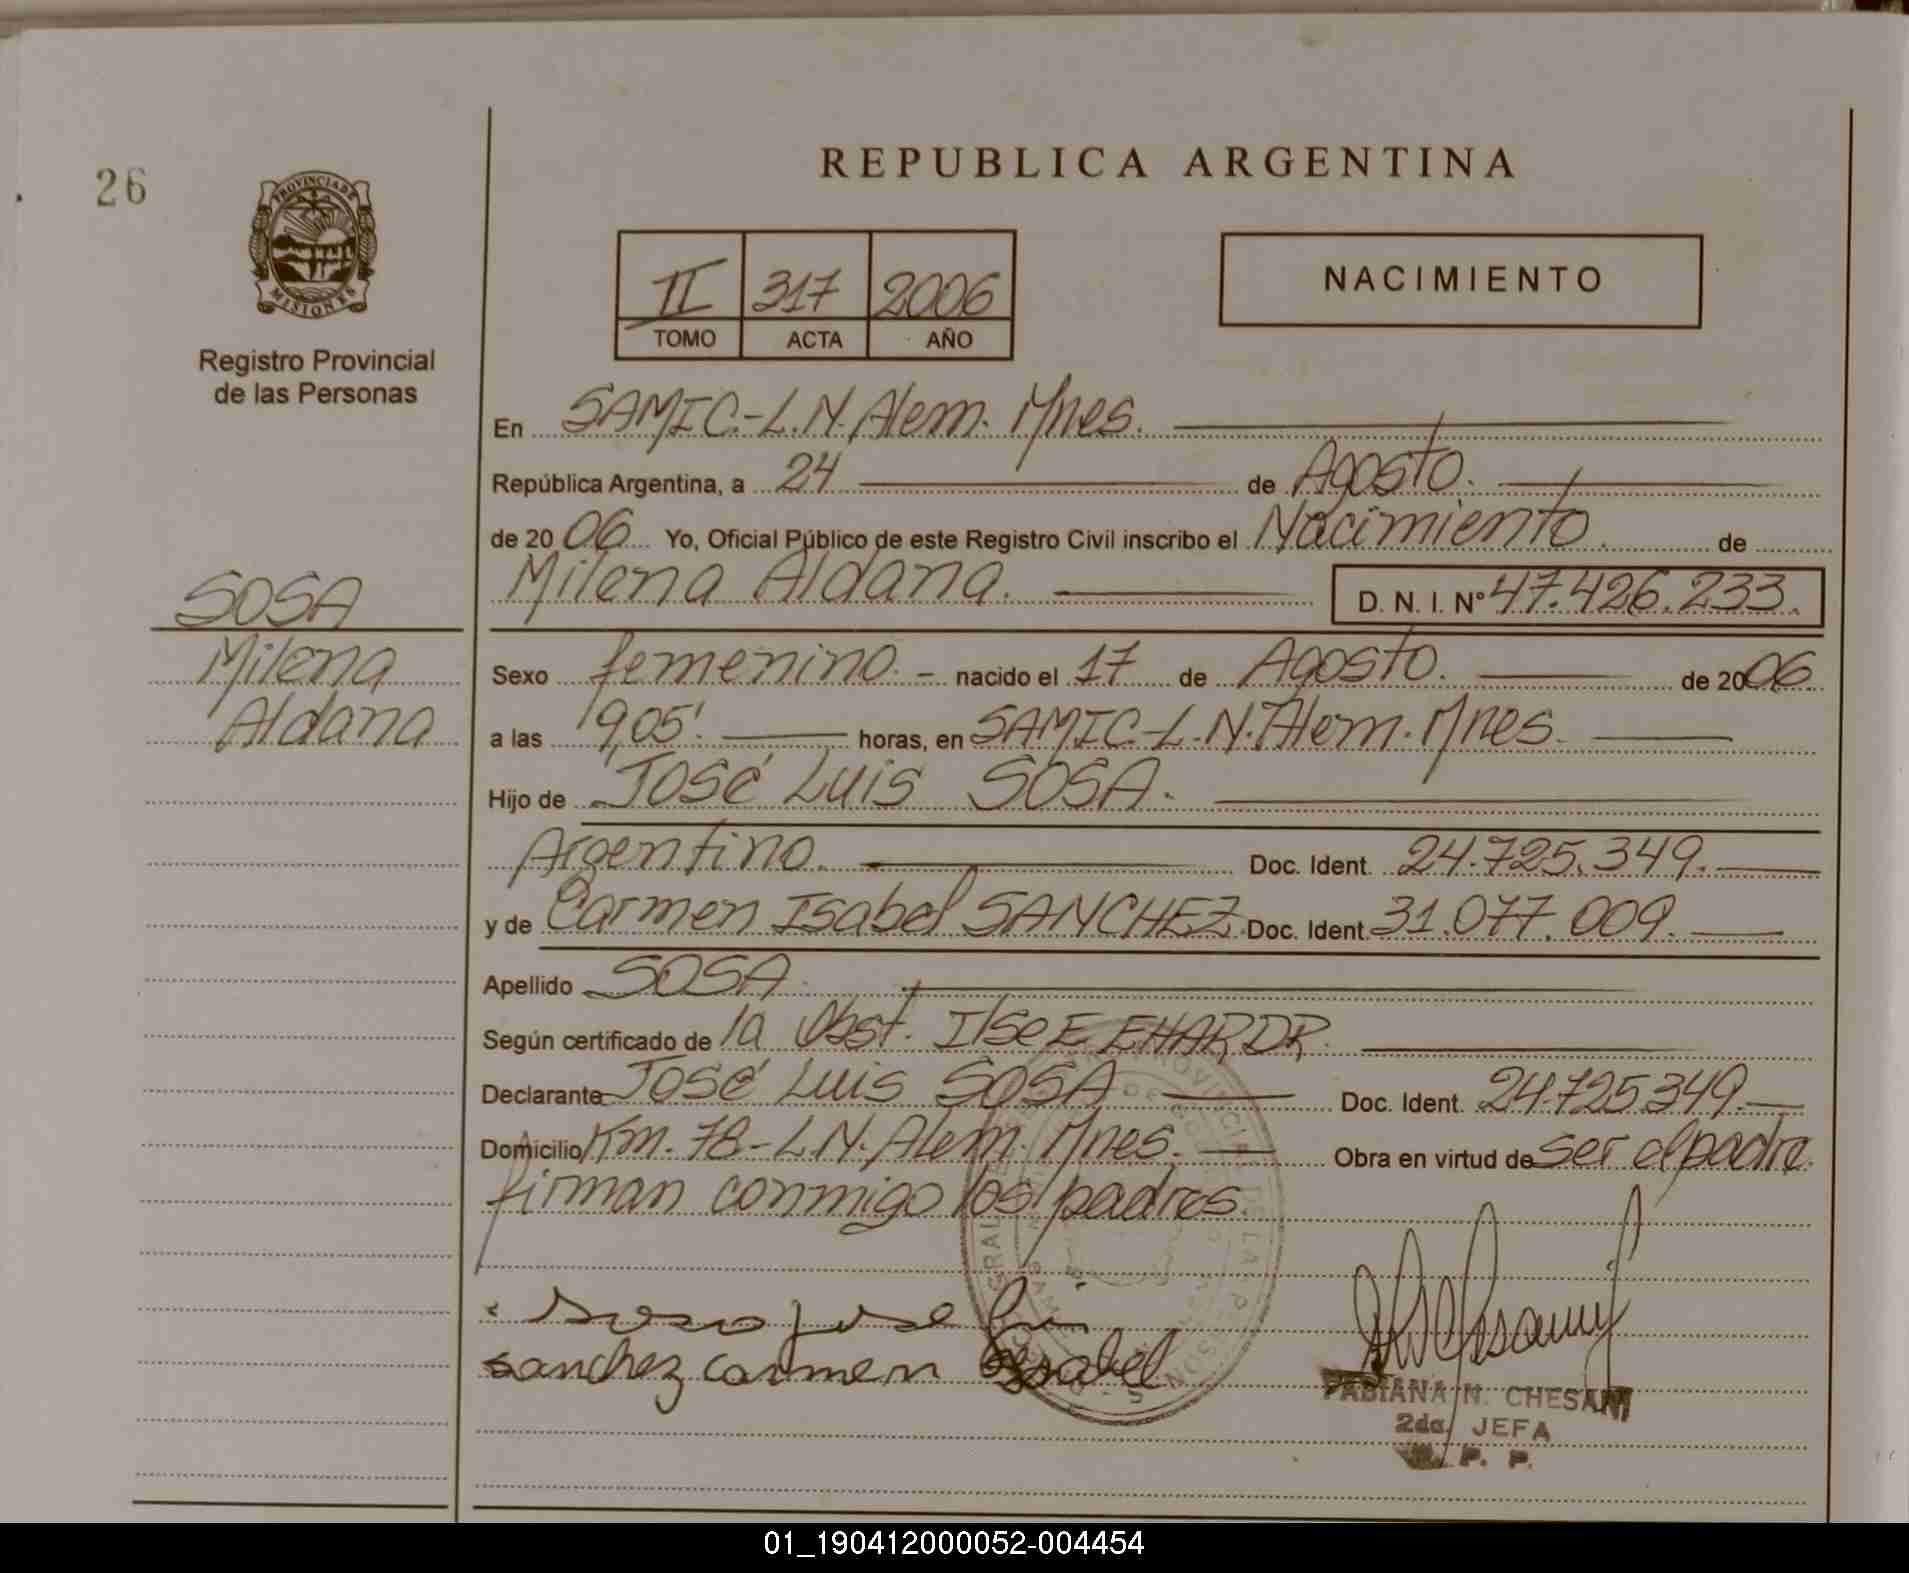 26
PROVINCIA DE
MISIONES
Registro Provincial
de las Personas
REPUBLICA ARGENTINA
II 317 2006
TOMO ACTA AÑO
NACIMIENTO
En SAMIC.-L.N. Alem. Mnes.
República Argentina, a 24 de Agosto.
de 2006 Yo, Oficial Público de este Registro Civil inscribo el Nacimiento de
Milena Aldana. D. N. I. Nº 47.426.233.
SOSA
Milena
Aldana
Sexo femenino.- nacido el 17 de Agosto. de 2006
a las 9,05'. horas, en SAMIC-L.N. Alem. Mnes.
Hijo de José Luis SOSA.
Argentino. Doc. Ident. 24.725.349.
y de Carmen Isabel SANCHEZ. Doc. Ident. 31.077.009.
Apellido SOSA.
Según certificado de la Obst. Ilse E EHARDR.
Declarante José Luis SOSA Doc. Ident. 24.725349.
Domicilio Km. 78-L.N. Alem. Mnes. Obra en virtud de ser el padre.
firman conmigo los padres.
Sosa jose Luis
sanchez carmen Isabel
FABIANA N. CHESANI
2da. JEFA
R. P. P.
01_190412000052-004454